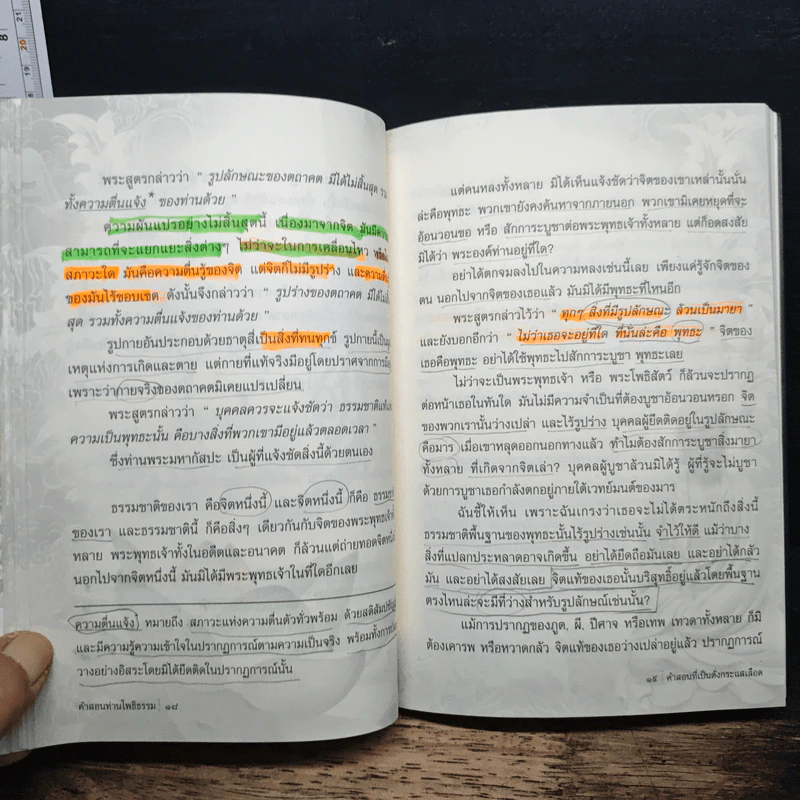 พระสูตรกล่าวว่า “ รูปลักษณะของตถาคต มิได้ไม่สิ้นสุด รวม
ทั้งความตื่นแจ้ง* ของท่านด้วย ”
ความผันแปรอย่างไม่สิ้นสุดนี้ เนื่องมาจากจิต มันมีความ
สามารถที่จะแยกแยะสิ่งต่างๆ ไม่ว่าจะในการเคลื่อนไหว หรือใน
สภาวะใด มันคือความตื่นรู้ของจิต แต่จิตก็ไม่มีรูปร่าง และความตื่น
ของมันไร้ขอบเขต ดังนั้นจึงกล่าวว่า “ รูปร่างของตถาคต มิได้ไม่สิ้น
สุด รวมทั้งความตื่นแจ้งของท่านด้วย ”
รูปกายอันประกอบด้วยธาตุสี่เป็นสิ่งที่ทนทุกข์ รูปกายนี้เป็น
เหตุแห่งการเกิดและตาย แต่กายที่แท้จริงมีอยู่โดยปราศจากการมีอยู่
เพราะว่ากายจริงของตถาคตมิเคยแปรเปลี่ยน
พระสูตรกล่าวว่า “ บุคคลควรจะแจ้งชัดว่า ธรรมชาติแท้แห่ง
ความเป็นพุทธะนั้น คือบางสิ่งที่พวกเขามีอยู่แล้วตลอดเวลา ”
ซึ่งท่านพระมหากัสปะ เป็นผู้ที่แจ้งชัดสิ่งนี้ด้วยตนเอง
ธรรมชาติของเรา คือจิตหนึ่งนี้ และจิตหนึ่งนี้ ก็คือ ธรรมชาติ
ของเรา และธรรมชาตินี้ ก็คือสิ่งๆ เดียวกันกับจิตของพระพุทธเจ้าทั้ง
หลาย พระพุทธเจ้าทั้งในอดีตและอนาคต ก็ล้วนแต่ถ่ายทอดจิตหนึ่งนี้
นอกไปจากจิตหนึ่งนี้ มันมิได้มีพระพุทธเจ้าในที่ใดอีกเลย
ความตื่นแจ้ง หมายถึง สภาวะแห่งความตื่นตัวทั่วพร้อม ด้วยสติสัมปชัญญะ
และมีความรู้ความเข้าใจในปรากฏการณ์ตามความเป็นจริง พร้อมทั้งการ
วางอย่างอิสระโดยมิได้ยึดติดในปรากฏการณ์นั้น
คำสอนท่านโพธิธรรม ๑๘
แต่คนหลงทั้งหลาย มิได้เห็นแจ้งชัดว่าจิตของเขาเหล่านั้นนั่น
ล่ะคือพุทธะ พวกเขายังคงค้นหาจากภายนอก พวกเขามิเคยหยุดที่จะ
อ้อนวอนขอ หรือ สักการะบูชาต่อพระพุทธเจ้าทั้งหลาย แต่ก็อดสงสัย
มิได้ว่า พระองค์ท่านอยู่ที่ใด?
อย่าได้ตกจมลงไปในความหลงเช่นนี้เลย เพียงแค่รู้จักจิตของ
ตน นอกไปจากจิตของเธอแล้ว มันมิได้มีพุทธะที่ไหนอีก
พระสูตรกล่าวไว้ว่า “ ทุกๆ สิ่งที่มีรูปลักษณะ ล้วนเป็นมายา ”
และยังบอกอีกว่า “ ไม่ว่าเธอจะอยู่ที่ใด ที่นั่นล่ะคือ พุทธะ ” จิตของ
เธอคือพุทธะ อย่าได้ใช้พุทธะไปสักการะบูชา พุทธะเลย
ไม่ว่าจะเป็นพระพุทธเจ้า หรือ พระโพธิสัตว์ ก็ล้วนจะปรากฏ
ต่อหน้าเธอในทันใด มันไม่มีความจำเป็นที่ต้องบูชาอ้อนวอนหรอก จิต
ของพวกเรานั้นว่างเปล่า และไร้รูปร่าง บุคคลผู้ยึดติดอยู่ในรูปลักษณะ
คือมาร เมื่อเขาหลุดออกนอกทางแล้ว ทำไมต้องสักการะบูชาสิ่งมายา
ทั้งหลาย ที่เกิดจากจิตเล่า? บุคคลผู้บูชาล้วนมิได้รู้ ผู้ที่รู้จะไม่บูชา
ด้วยการบูชาเธอกำลังตกอยู่ภายใต้เวทย์มนต์ของมาร
ฉันชี้ให้เห็น เพราะฉันเกรงว่าเธอจะไม่ได้ตระหนักถึงสิ่งนี้
ธรรมชาติพื้นฐานของพุทธะนั้นไร้รูปร่างเช่นนั้น จำไว้ให้ดี แม้ว่าบาง
สิ่งที่แปลกประหลาดอาจเกิดขึ้น อย่าได้ยึดถือมันเลย และอย่าได้กลัว
มัน และอย่าได้สงสัยเลย จิตแท้ของเธอนั้นบริสุทธิ์อยู่แล้วโดยพื้นฐาน
ตรงไหนล่ะจะมีที่ว่างสำหรับรูปลักษณ์เช่นนั้น?
แม้การปรากฏของภูต, ผี, ปีศาจ หรือเทพ เทวดาทั้งหลาย ก็มิ
ต้องเคารพ หรือหวาดกลัว จิตแท้ของเธอว่างเปล่าอยู่แล้ว ปรากฏการณ์
๑๙ คำสอนที่เป็นดั่งกระแสเลือด